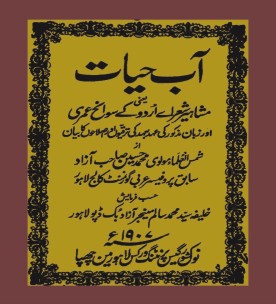 آب حیات
یعنی
مشاہیر شعرائے اردو کے سوانح عمری
اور زبان مذکور کی عہد بعہد کی ترقیوں اور اصلاحوں کا بیان
از
شمس العلما مولوی محمد حسین صاحب آزاد
سابق پروفیسر عربی گورنمنٹ کالج لاہور
حسب فرمایش
خلیفہ سید محمد سالم منیجر آزاد بک ڈپو لاہور
سنہ ۱۹۰۷ ء
نولکشور گیس پرنٹنگ ورکس لاہور میں چھپا